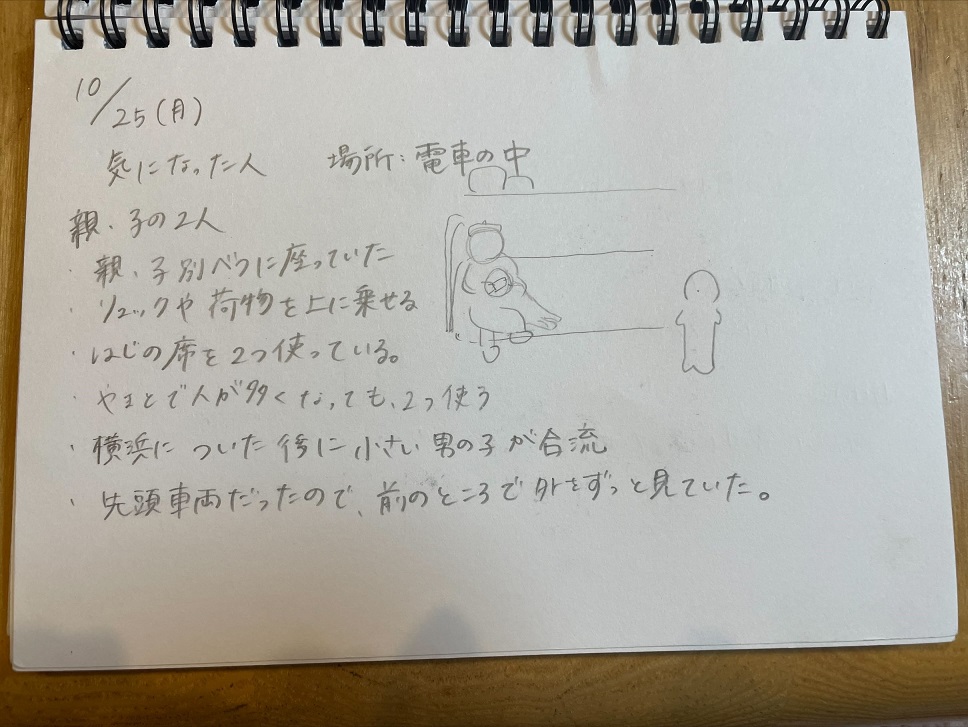 10/25(月)
気になった人 場所:電車の中
親、子の2人
・親、子別べつに座っていた
・リュックや荷物を上に乗せる
・はじの席を2つ使っている。
・やまとで人が多くなっても、2つ使う
・横浜についた後に小さい男の子が合流
・先頭車両だったので、前のところで外をずっと見ていた。